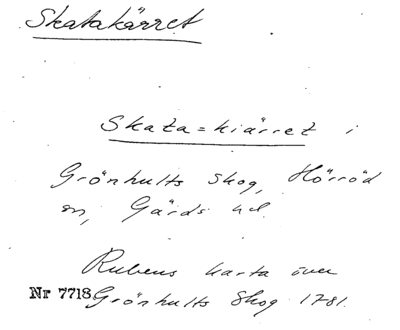 Skatakärret
Skata=kiärret i
Grönhults skog, Hörröd
sn, Gärds hd.
Rubens karta över
Nr 7718 Grönhults Skog 1781.